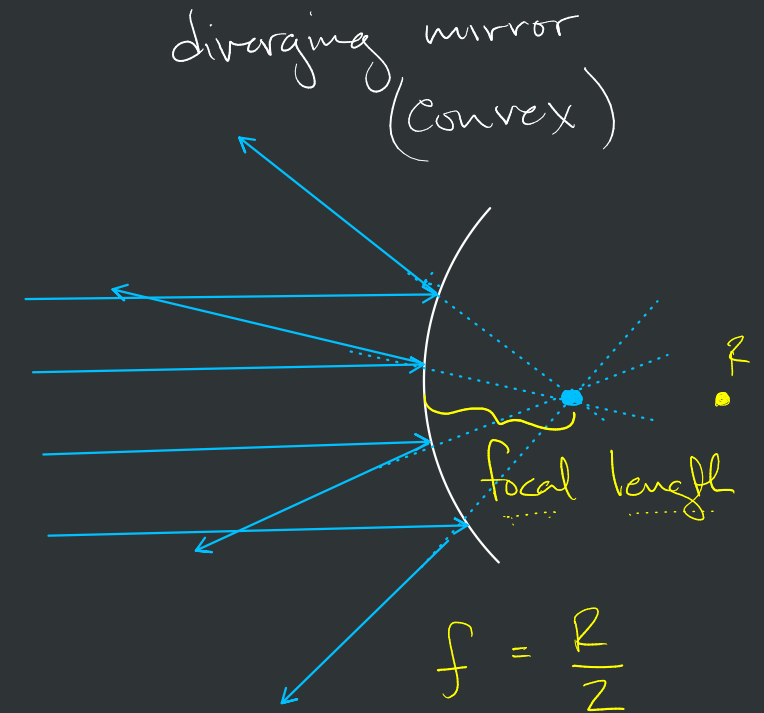 diverging mirror
(convex)
R
focal length
f = R/2